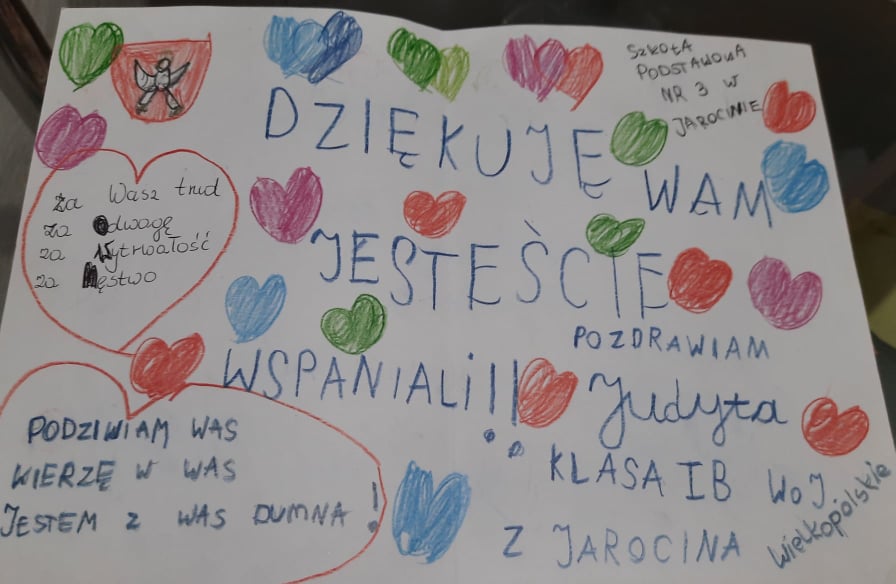 SZKOŁA
PODSTAWOWA
NR 3 W
JAROCINIE
DZIĘKUJĘ
WAM
za Wasz trud
za Odwagę
za Wytrwałość
za Męstwo
JESTEŚCIE
WSPANIALI!!
POZDRAWIAM
Judyta
KLASA IB
Z JAROCINA
WOJ
wielkopolskie
PODZIWIAM WAS
WIERZĘ W WAS
JESTEM Z WAS DUMNA!